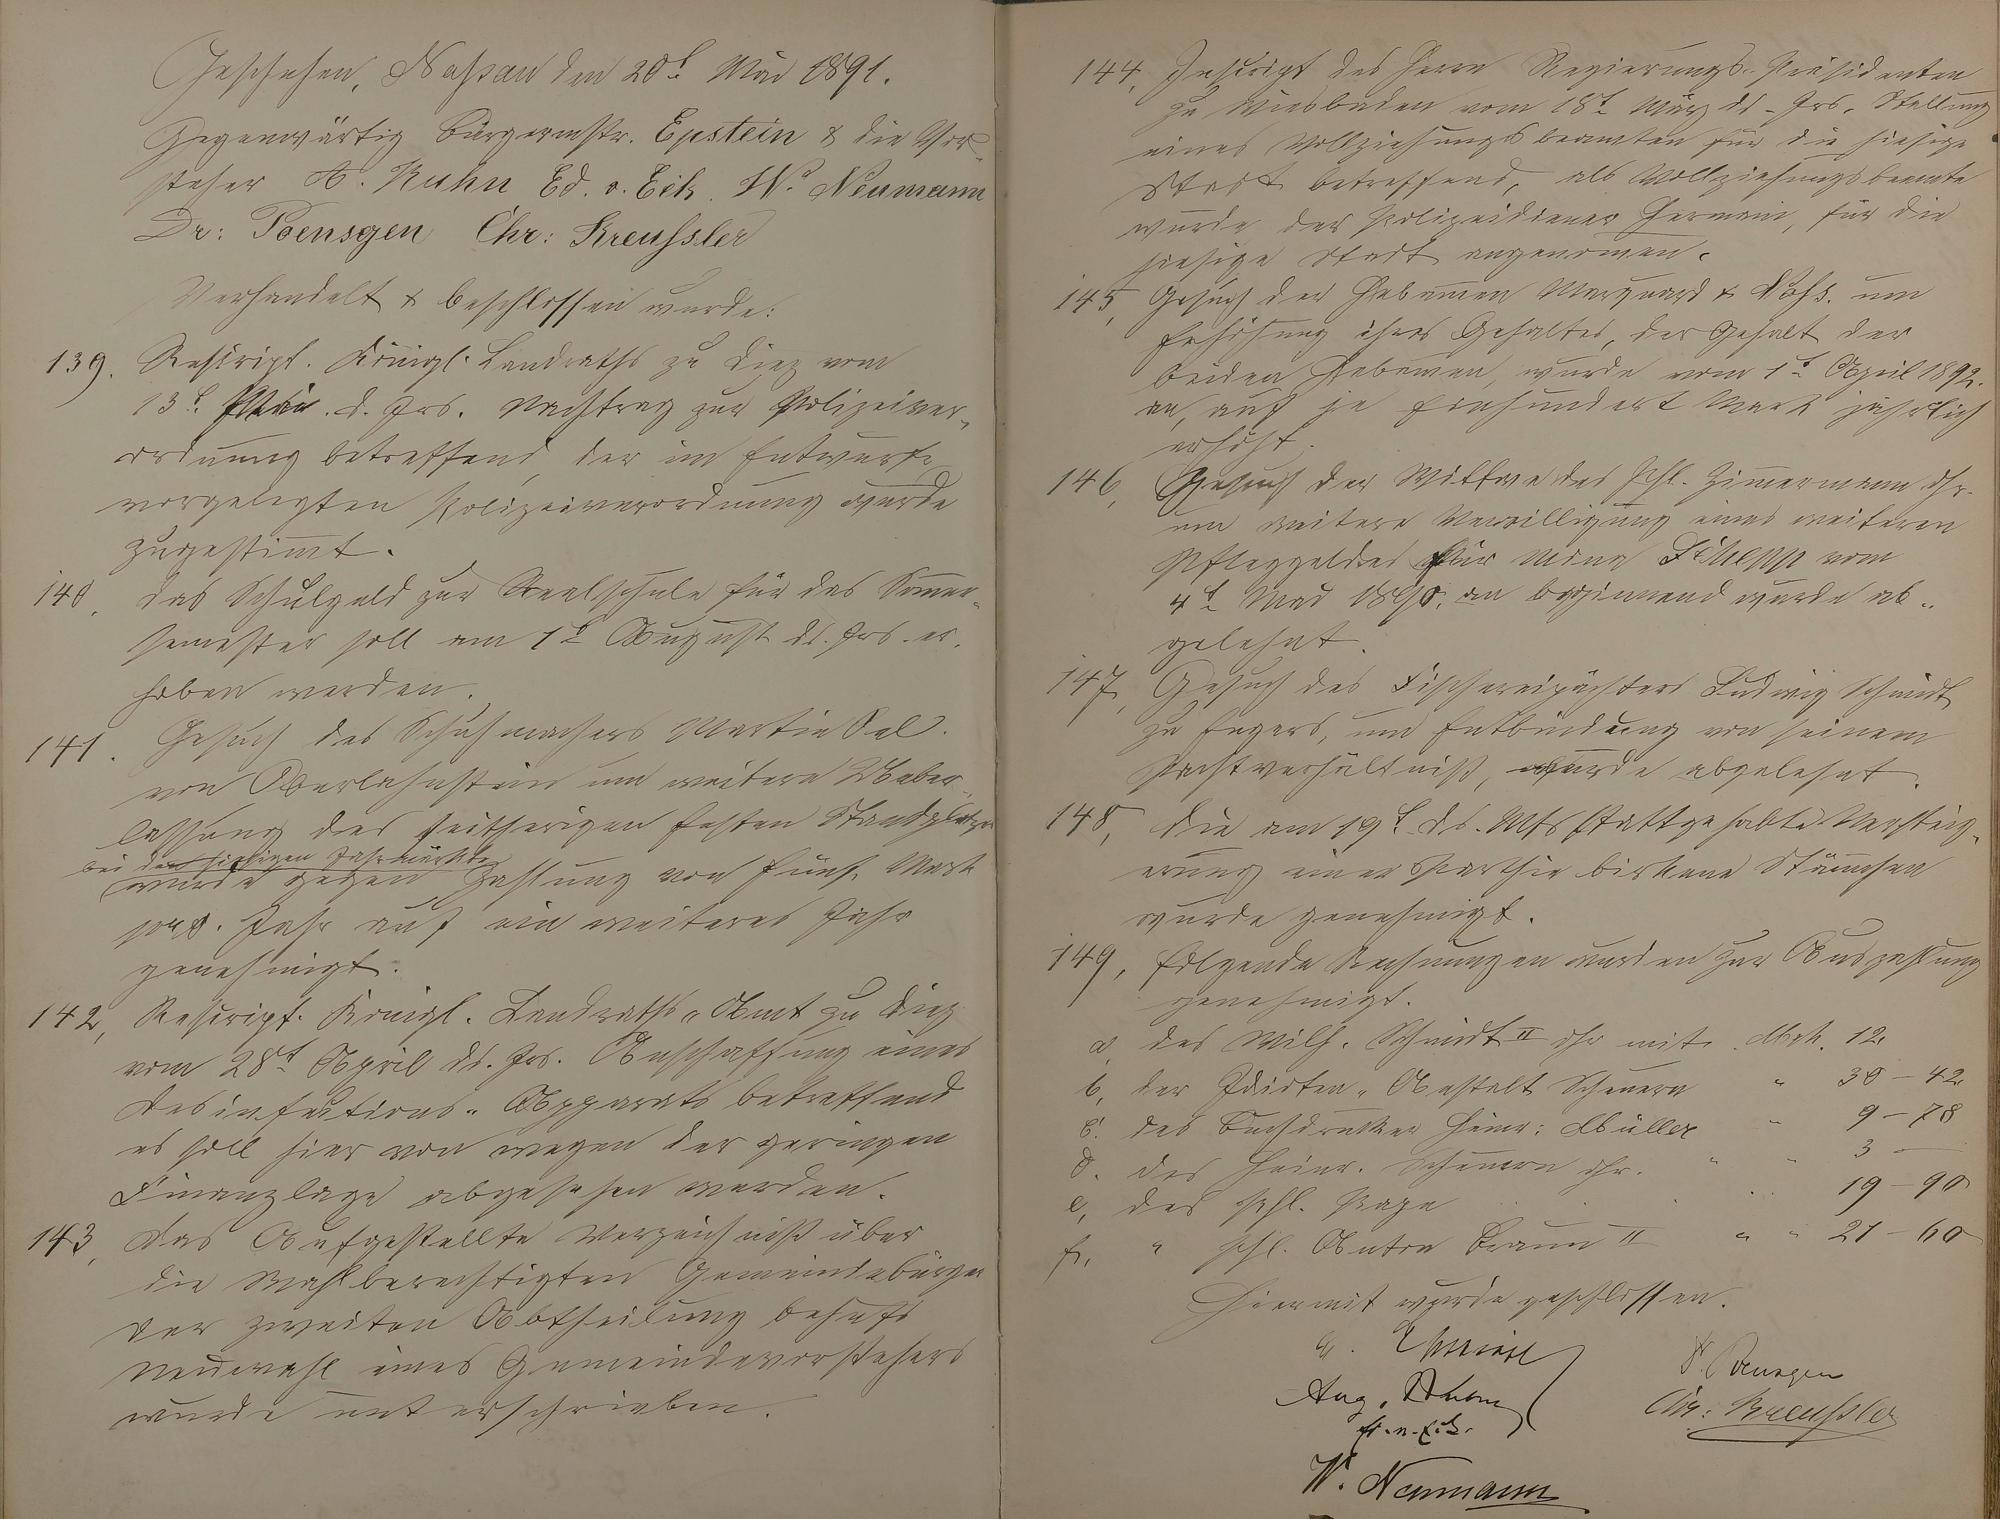 Geschehen, Nassau den 20t. Mai 1891.
Gegenwärtig Bürgermstr. Epstein & die Vor-
steher A. Kuhn Ed. v. Eck. Wm. Neumann
Dr: Poensgen Chr: Kreussler
Verhandelt & beschlossen wurde:
139. Rescript. Königl. Landraths zu Diez vom
13t. Mai. d. Jrs. Nachtrag zur Polizeiver-
ordnung betreffend, der im Entwurfe
vorgelegten Polizeiverordnung wurde
zugestimt.
140, Das Schulgeld zur Realschule für das Somer-
semester soll am 1t August ds. Jrs. er-
hoben werden.
141. Gesuch des Schuhmachers Martin Sal.
von Oberlahnstein um weitere Ueber-
lassung des seitherigen festen Standplatzes
bei den hiesigen Jahrmärkten
wurde gegen Zahlung von fünf Mark
pro. Jahr auf ein weiteres Jahr
genehmigt.
142, Rescript. Königl. Landraths-Amt zu Diez
vom 28t April ds. Jrs. Anschaffung eines
Desinfections-Apparats betreffend
es soll hier von wegen der geringen
Finanzlage abgesehen werden.
143, Das Aufgestellte Verzeichniß über
die Wahlberechtigten Gemeindebürger
der zweiten Abtheilung behufs
Neuwahl eines Gemeindevorstehers
wurde unterschrieben.
144, Inscript des Herrn Regierungs-Präsidenten
zu Wiesbaden vom 18t März ds. Jrs. Stellung
eines Vollziehungsbeamten für die hiesige
Stadt betreffend, als Vollziehungsbeamte
wurde der Polizeidiener Hermani, für die
hiesige Stadt angenomen.
145, Gesuch der Hebamen Marquard & um
Erhöhung ihres Gehaltes, der Gehalt der
beiden Hebamen, wurde vom 1t April 1892.
an, auf je Einhundert Mark jährlich
erhöht.
146, Gesuch der Wittwe des Phl. Zimermann dhr.
um weitere Verwilligung eines weiteren
Pfleggeldes für Mina Schepp vom
4t Mai 1890. an beginnend wurde ab-
gelehnt.
147, Gesuch des Fischereipächters Ludwig Schmidt
zu Engers, um Entbindung von seinem
Pachtverhältniß, wurde abgelehnt.
148, Die am 19t. ds. Mts stattgehabte Versteig-
erung einer Parthie birkene Stämchen
wurde genehmigt.
149, Folgende Rechnungen wurden zur Auszahlung
genehmigt.
a, des Wilh. Schmidt II dhr mit Mrk. 12.
b, der Idioten-Anstalt Scheuern " 30 - 42
c. des Buchdrucker Heinr: Müller " 9 - 78
d. des Heinr. Scheuern dhr. " " 3 -
e, des Phl. 19 - 90
f, " Phl. Anton Braun II " " 21 - 60
Hiermit wurde geschlossen.
Epstein
Dr. Poensgen
Aug. Kuhn
Chr: Kreussler
E. v. Eck.
W. Neumann